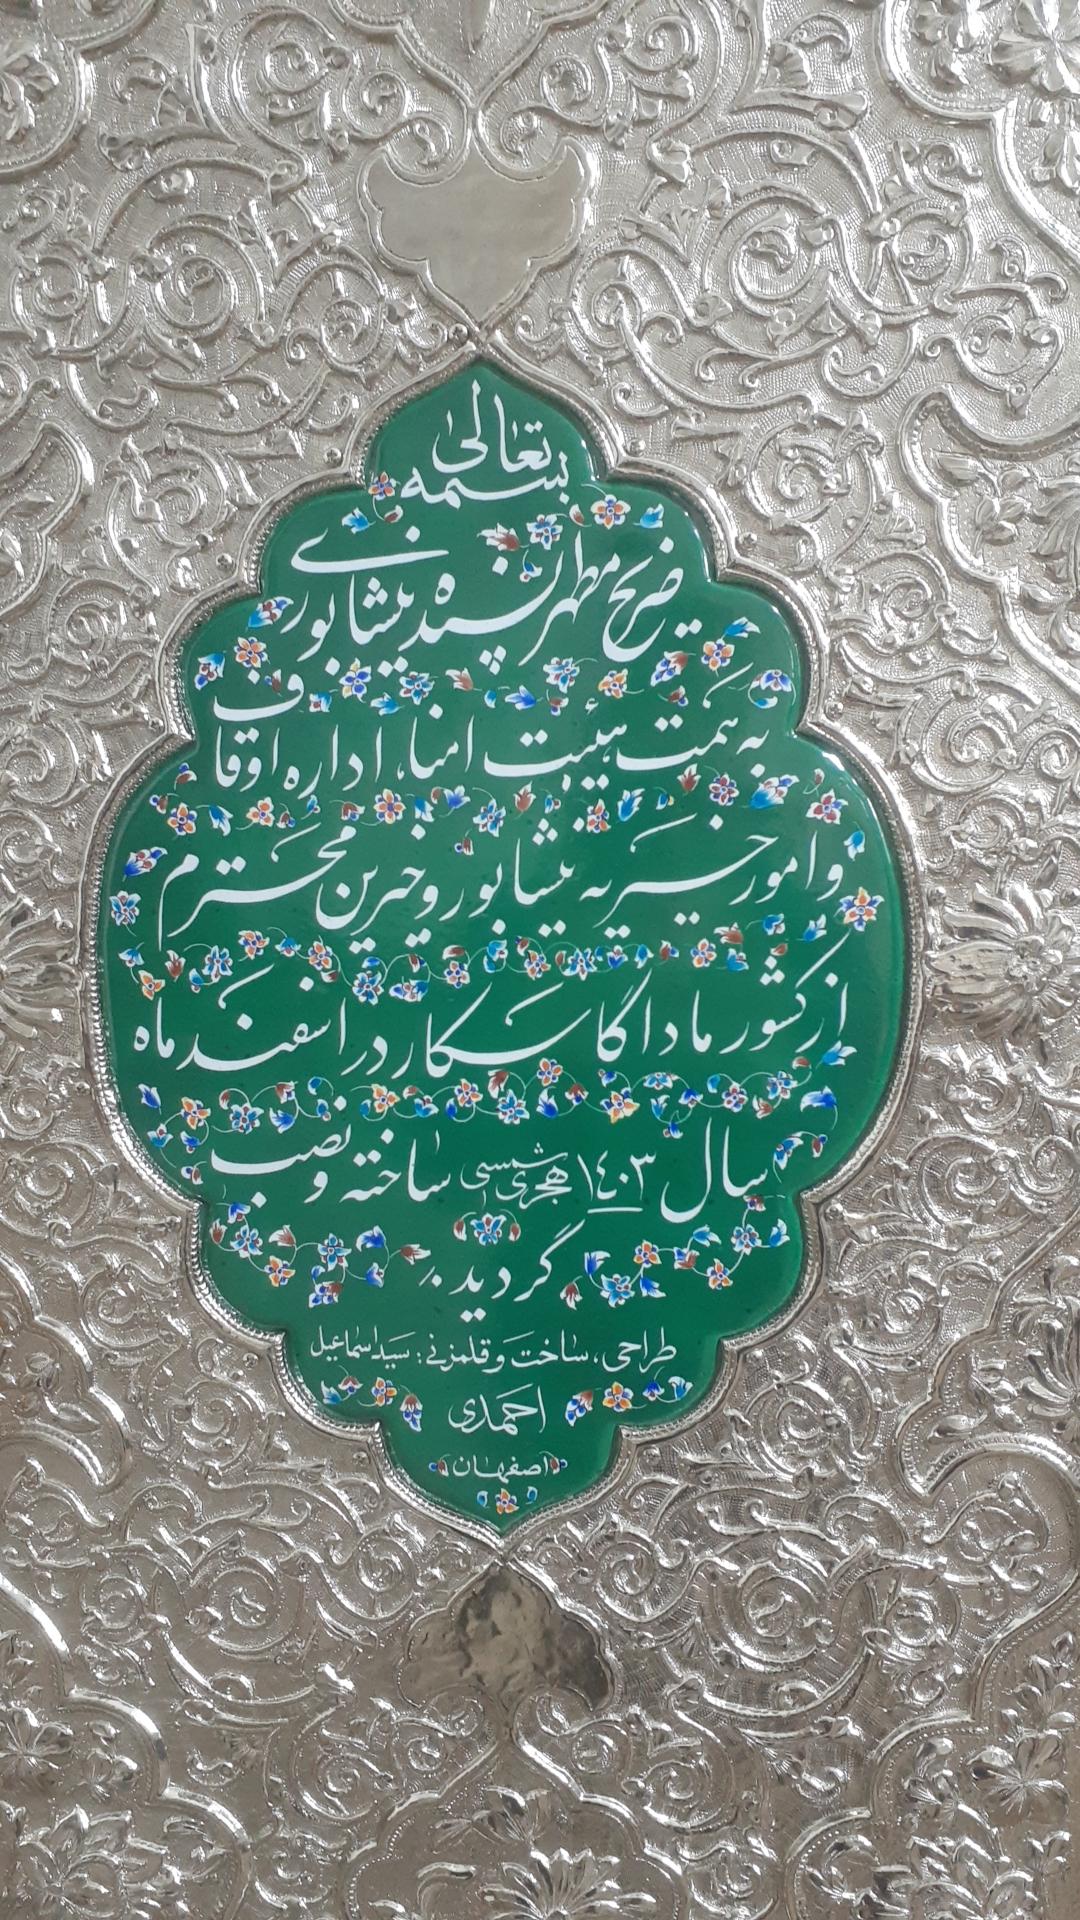 بسمه تعالی
ضریح مطهر پسنده نیشابوری
به همت هیئت امناء، اداره اوقاف
و امور خیریه نیشابور و خیرین محترم
از کشور ماداگاسکار در اسفند ماه
سال ۱۴۰۳ هجری شمسی ساخته و نصب
گردید.
طراحی، ساخت و قلمزنی: سید اسماعیل
احمدی
اصفهان